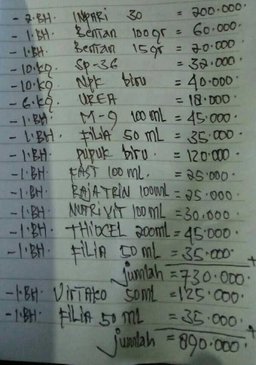 - 2.BH. INPARI 30 = 200.000.
- 1.BH. Bentan 100 gr = 60.000.
- 1.BH. Bentan 15 gr = 20.000.
- 10.KG. SP-36 = 32.000.
- 10.KG. NPK biru = 40.000.
- 6.KG. UREA = 18.000.
- 1.BH. M-9 100 mL = 45.000.
- 1.BH. FILIA 50 mL = 35.000.
- 1.BH. PUPUK biru. = 120.000
- 1.BH. FAST 100 mL. = 25.000.
- 1.BH. RAJATRIN 100mL = 25.000.
- 1.BH. NUTRIVIT 100 mL = 30.000.
- 1.BH. THIOCEL 200mL = 45.000.
- 1.BH. FILIA 50 mL = 35.000. +
jumlah = 730.000.
- 1.BH. VIRTAKO 50mL = 125.000.
- 1.BH. FILIA 50 mL = 35.000. +
jumlah = 890.000.